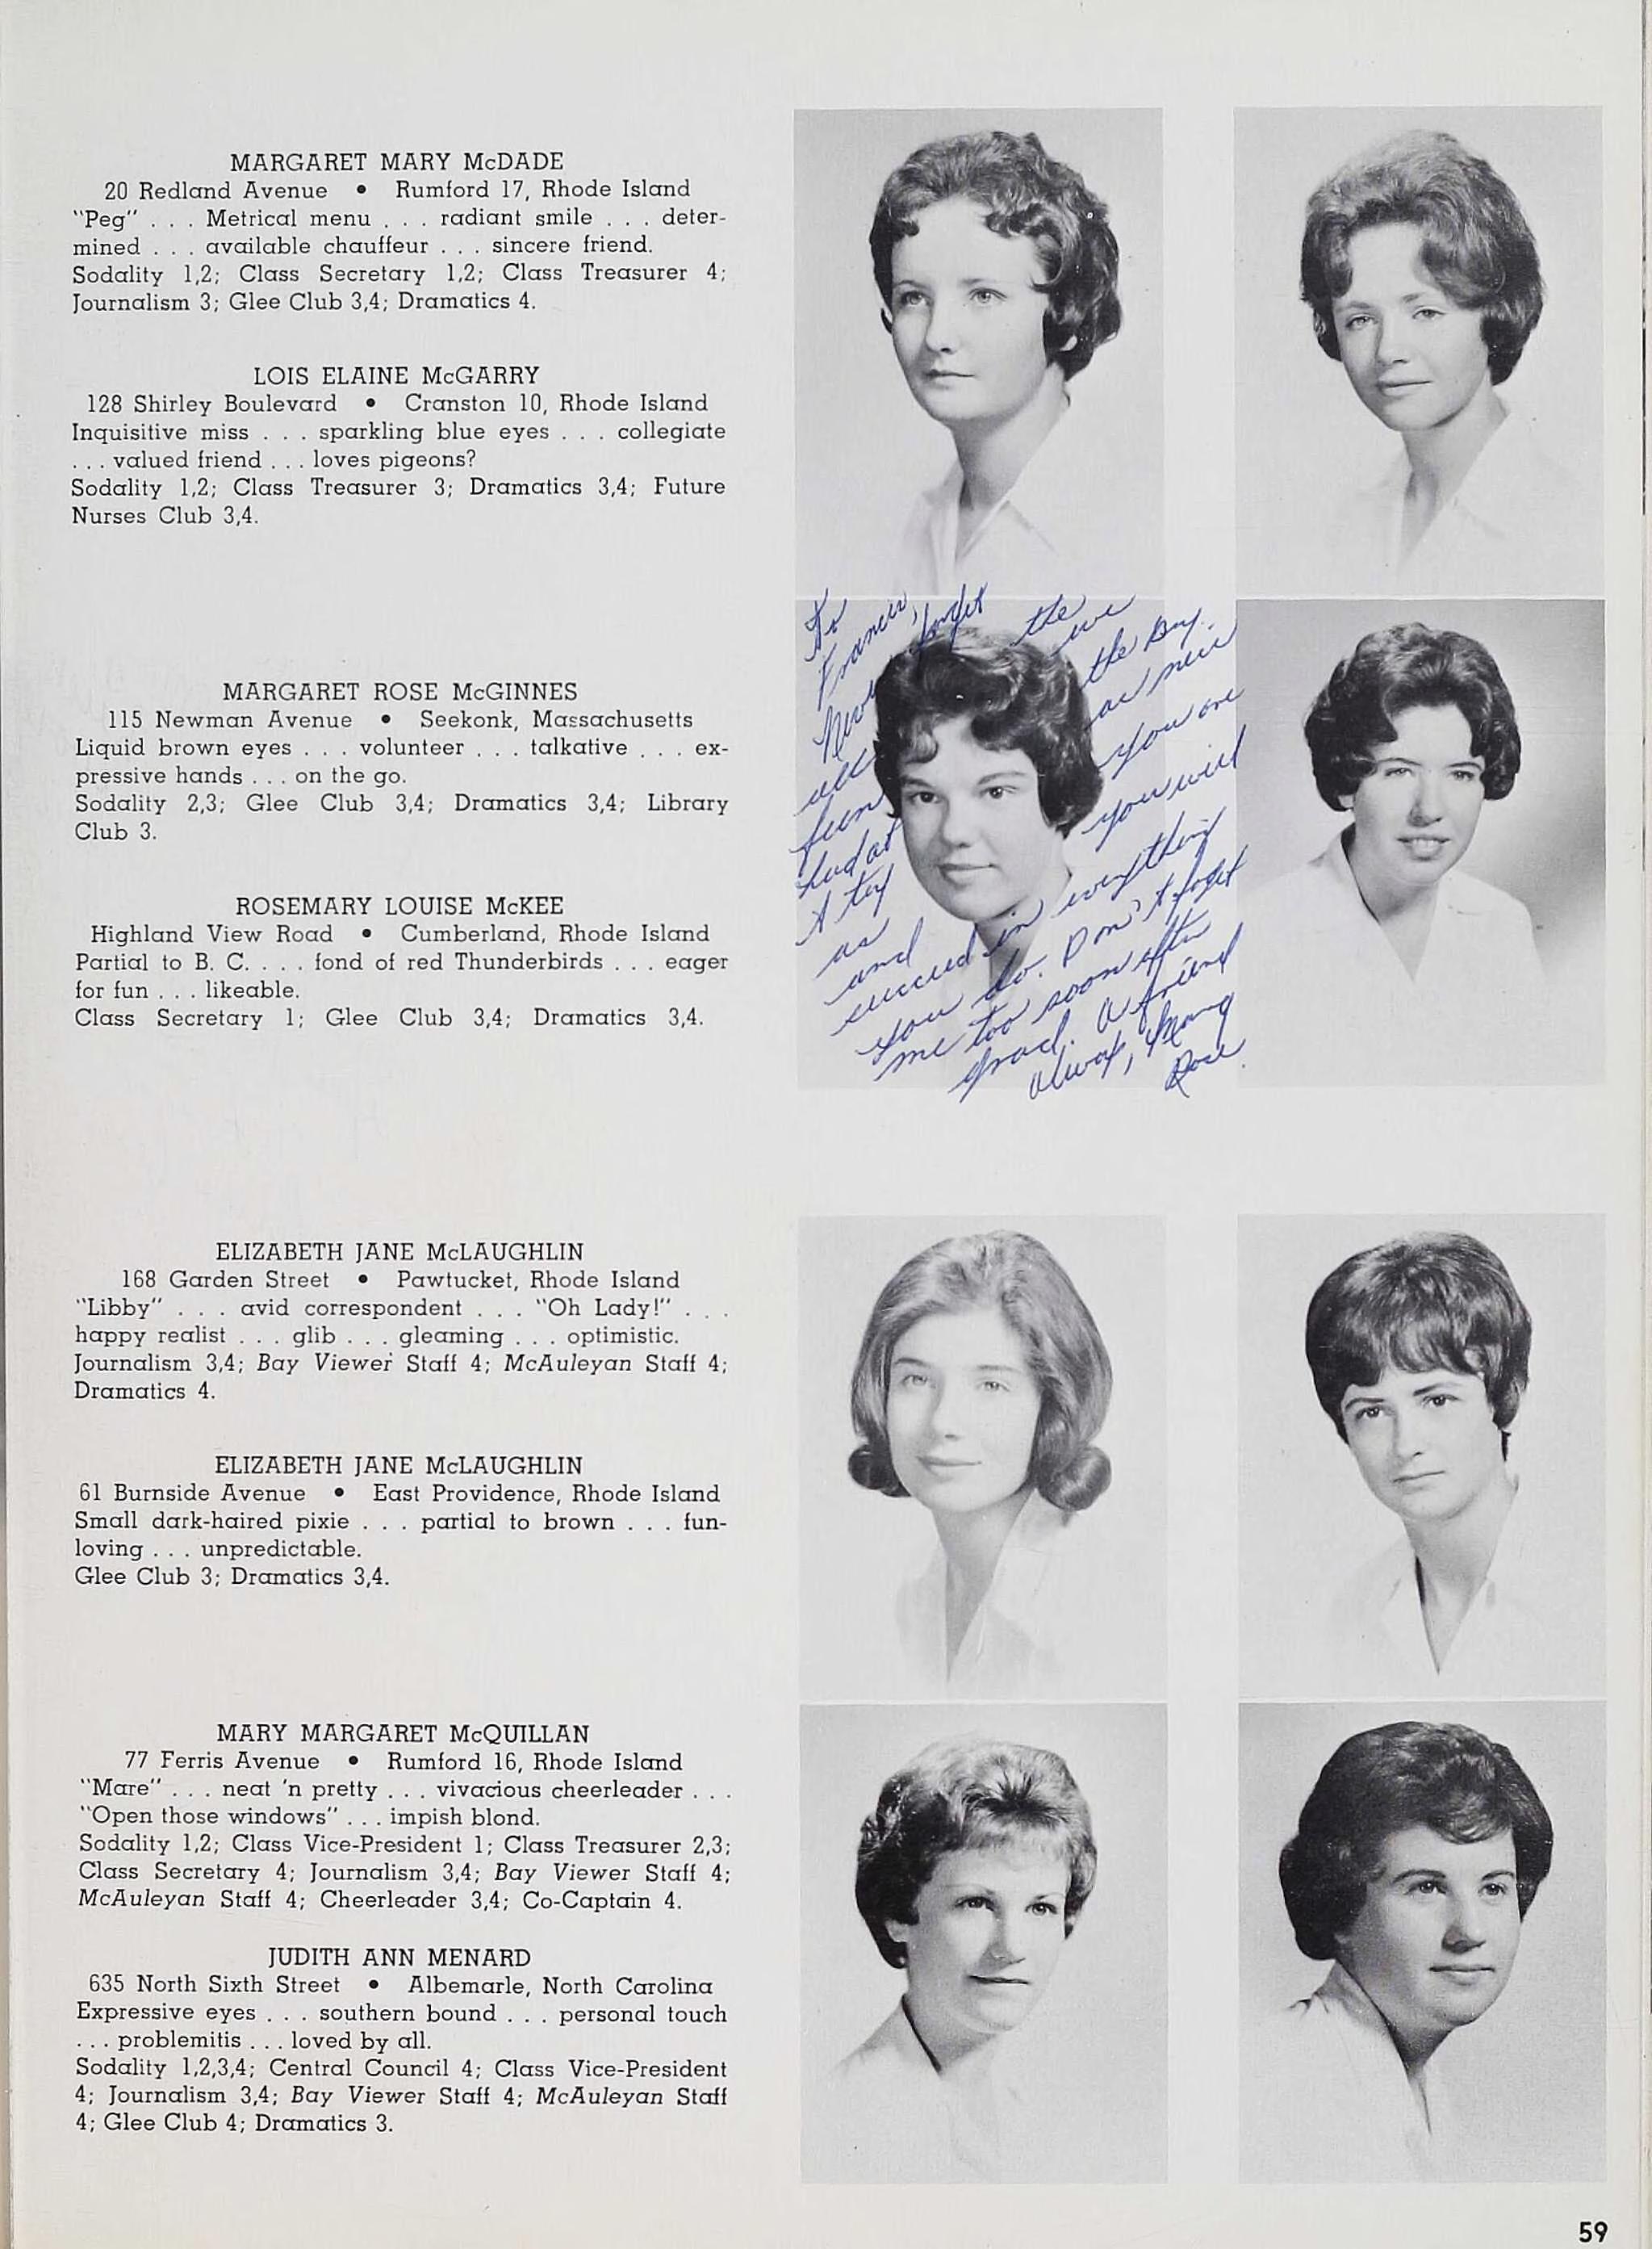 MARGARET MARY McDADE
20 Redland Avenue • Rumford 17, Rhode Island
"Peg" . . . Metrical menu . . . radiant smile . . . deter-
mined . . . available chauffeur . . . sincere friend.
Sodality 1,2; Class Secretary 1,2; Class Treasurer 4;
Journalism 3; Glee Club 3,4; Dramatics 4.
LOIS ELAINE McGARRY
128 Shirley Boulevard • Cranston 10, Rhode Island
Inquisitive miss . . . sparkling blue eyes . . . collegiate
. . . valued friend . . . loves pigeons?
Sodality 1,2; Class Treasurer 3; Dramatics 3,4; Future
Nurses Club 3,4.
MARGARET ROSE McGINNES
115 Newman Avenue • Seekonk, Massachusetts
Liquid brown eyes . . . volunteer . . . talkative . . . ex-
pressive hands . . . on the go.
Sodality 2,3; Glee Club 3,4; Dramatics 3,4; Library
Club 3.
ROSEMARY LOUISE McKEE
Highland View Road • Cumberland, Rhode Island
Partial to B. C. . . . fond of red Thunderbirds . . . eager
for fun . . . likeable.
Class Secretary 1; Glee Club 3,4; Dramatics 3,4.
To
Frances,
Never forget the
all we
fun
had at the Bay.
Stay
as you are
and you will
succeed in everything
you do. Don't forget
me too soon after
grad. A friend
always, Marg
Rose.
ELIZABETH JANE McLAUGHLIN
168 Garden Street • Pawtucket, Rhode Island
"Libby" . . . avid correspondent . . . "Oh Lady!" . . .
happy realist . . . glib . . . gleaming . . . optimistic.
Journalism 3,4; Bay Viewer Staff 4; McAuleyan Staff 4;
Dramatics 4.
ELIZABETH JANE McLAUGHLIN
61 Burnside Avenue • East Providence, Rhode Island
Small dark-haired pixie . . . partial to brown . . . fun-
loving . . . unpredictable.
Glee Club 3; Dramatics 3,4.
MARY MARGARET McQUILLAN
77 Ferris Avenue • Rumford 16, Rhode Island
"Mare" . . . neat 'n pretty . . . vivacious cheerleader . . .
"Open those windows" . . . impish blond.
Sodality 1,2; Class Vice-President 1; Class Treasurer 2,3;
Class Secretary 4; Journalism 3,4; Bay Viewer Staff 4;
McAuleyan Staff 4; Cheerleader 3,4; Co-Captain 4.
JUDITH ANN MENARD
635 North Sixth Street • Albemarle, North Carolina
Expressive eyes . . . southern bound . . . personal touch
. . . problemitis . . . loved by all.
Sodality 1,2,3,4; Central Council 4; Class Vice-President
4; Journalism 3,4; Bay Viewer Staff 4; McAuleyan Staff
4; Glee Club 4; Dramatics 3.
59